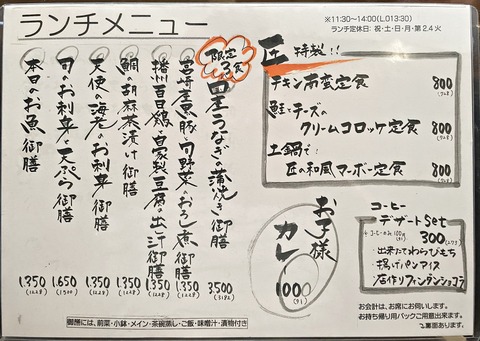 ランチメニュー
※11:30〜14:00(L.O13:30)
ランチ定休日: 祝・土・日・月・第2.4火
匠 特製!!
チキン南蛮定食 800
(728)
鮭とチーズの
クリームコロッケ定食 800
(728)
土鍋で!
匠の和風マーボー定食 800
(728)
限定3食
うなぎの蒲焼き御膳 3,500
(3182)
宮崎産黒豚と旬野菜のおろし煮御膳 1,350
(1228)
播州百日鶏と自家製豆腐の出し汁御膳 1,350
(1228)
鯛の胡麻茶漬け御膳 1,350
(1228)
天使の海老のお刺身御膳 1,350
(1228)
旬のお刺身と天ぷら御膳 1,650
(1500)
本日のお魚御膳 1,350
(1228)
お子様
カレー
1000
コーヒー
デザートSet
+コーヒーのみ100円
(91)
300
(273)
・出来たてわらびもち
・揚げパンアイス
・店作りフォンダンショコラ
御膳には、前菜・小鉢・メイン・茶碗蒸し・ご飯・味噌汁・漬物付き
お会計は、お席にお伺いします。
お持ち帰り用パックご用意出来ます。
裏面あります。